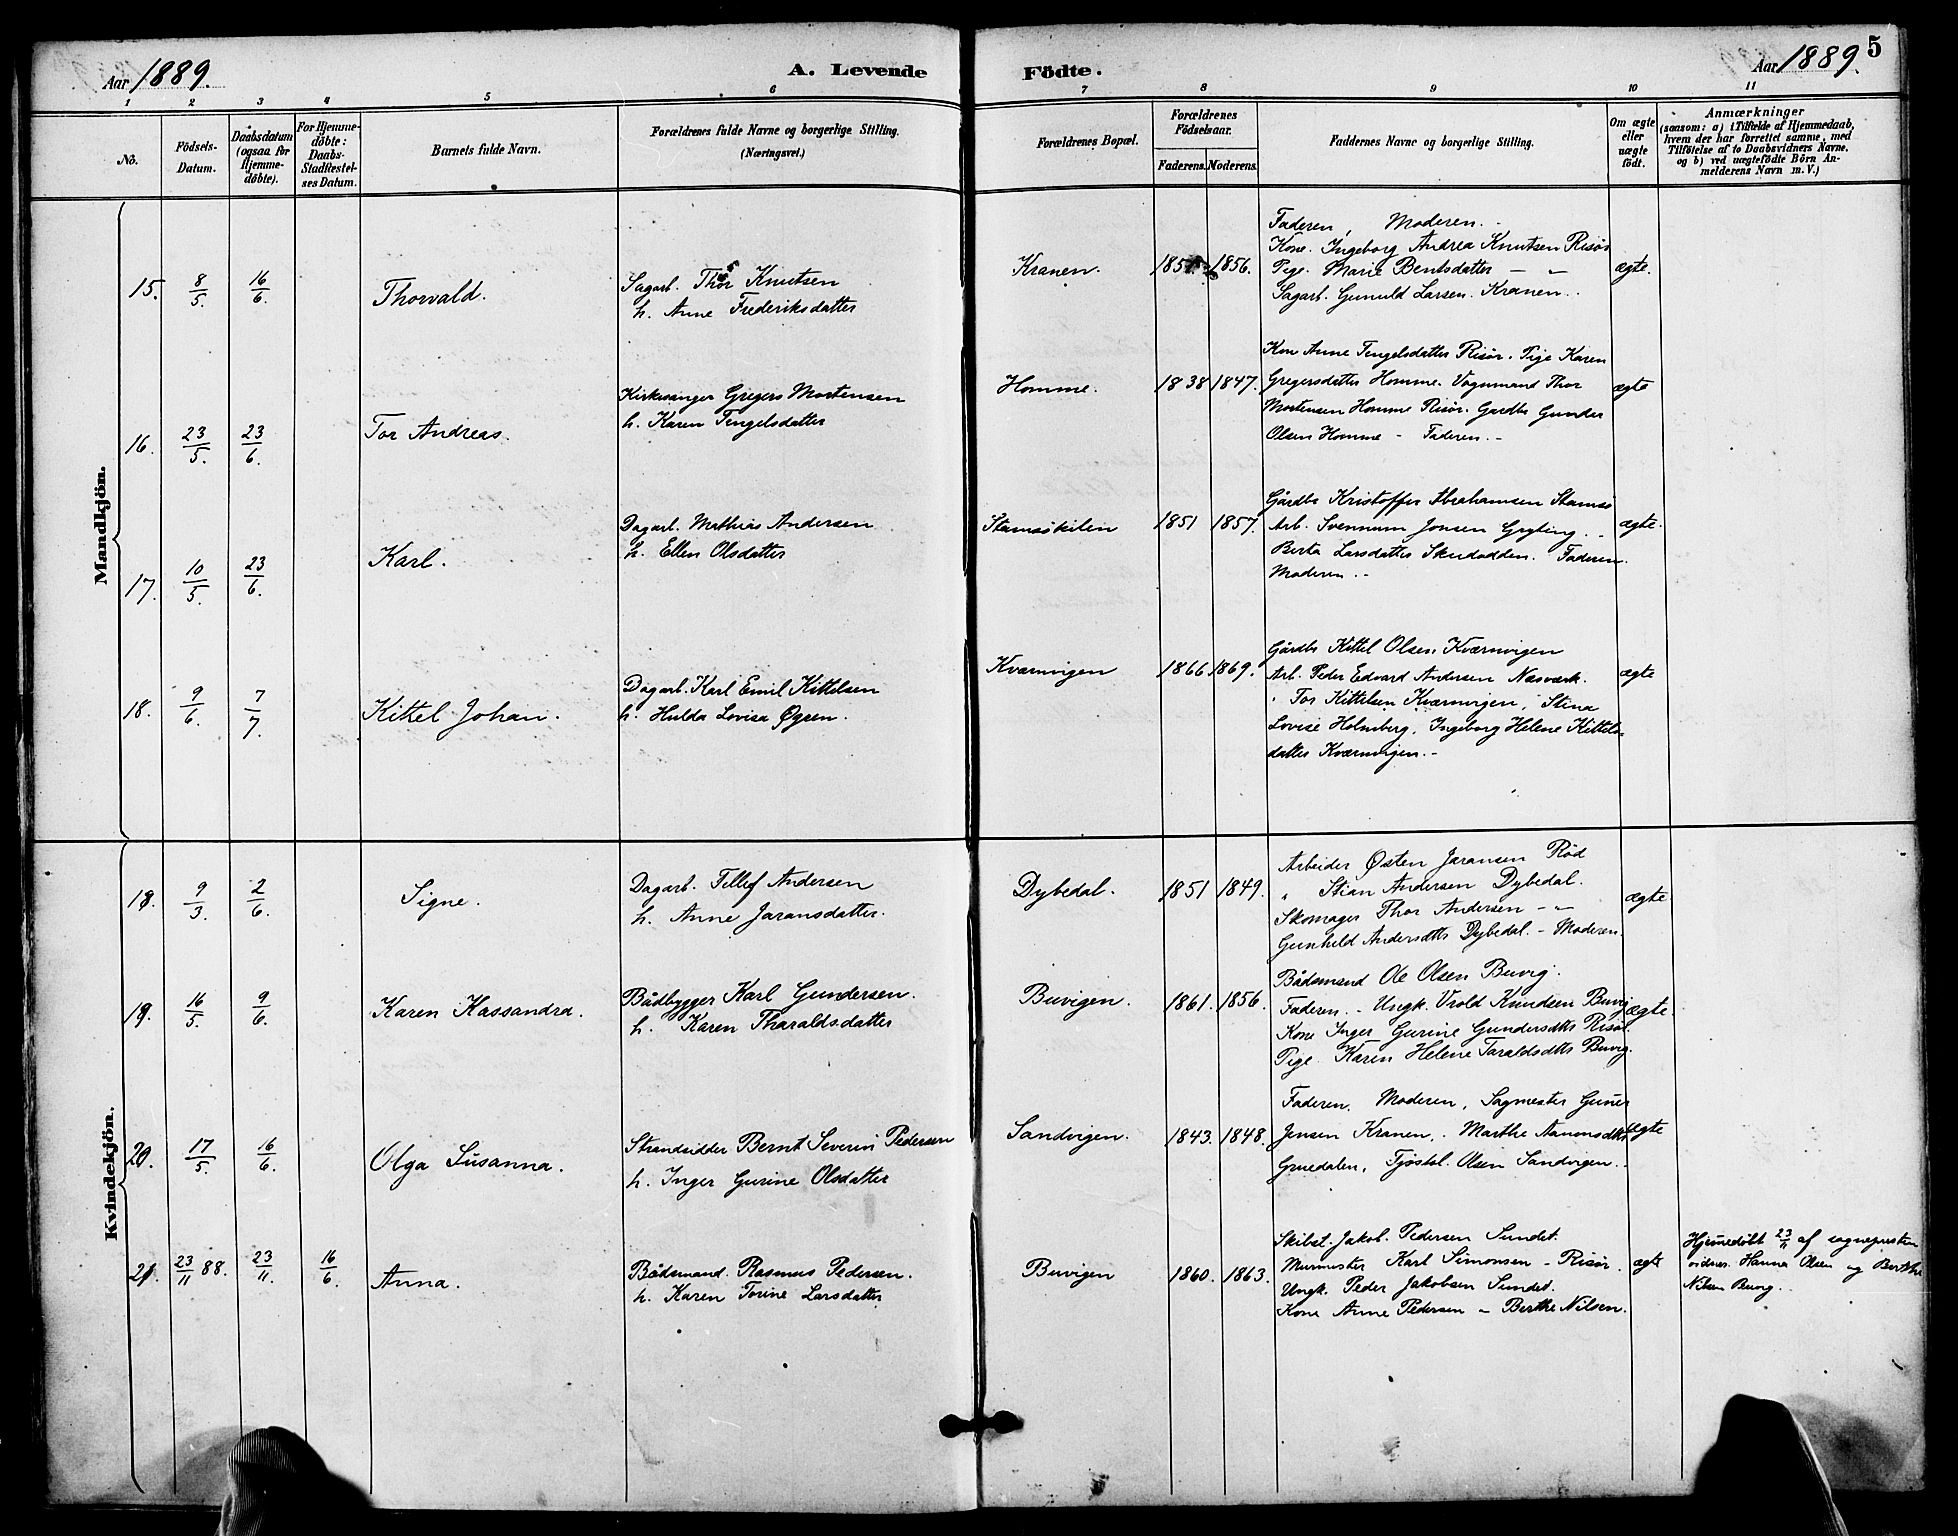 Aar 1889.
A. Levende
Födte.
Aar 1889.
5
1 2 3 4 5 6 7 8 9 10 11
No.
Födsels-
Datum.
Daabsdatum
(ogsaa for
Hjemme-
döbte).
For Hjemme-
döbte:
Daabs-
Stadfæstel-
ses Datum.
Barnets fulde Navn.
Forældrenes fulde Navne og borgerlige Stilling.
(Næringsvei.)
Forældrenes Bopæl.
Forældrenes
Födselsaar.
Faderens. Moderens.
Faddernes Navne og borgerlige Stilling.
Om ægte
eller
uægte
födt.
Anmærkninger
(saasom: a) i Tilfælde af Hjemmedaab,
hvem der har forrettet samme, med
Tilföielse af to Daabsvidners Navne.
og b) ved uægtefödte Börn An-
melderens Navn m. V.)
Mandkjön.
15. 8/5. 16/6. Thorvald.
Sagarb. Thor Knutsen
h. Anne Frederiksdatter
Kranen. 1856.
Faderen, Moderen.
Kone. Ingeborg Andrea Knutsen Risør
Pige. Marie Bentsdatter — "
Sagarb. Gunuld Larsen. Kranen.
ægte.
16. 23/5. 23/6. Tor Andreas.
Kirkesanger Gregers Mortensen
h. Karen Tengelsdatter
Homme. 1838 1847.
Kon Anne Tengelsdatter Risør. Pige Karen
Gregersdatter Homme. Vognmand Thor
Mortensen Homme Risør. Gardbr Gunder
Olsen Homme - Faderen.-
ægte
17. 10/5. 23/6. Karl.
Dagarb. Mathias Andersen
h. Ellen Olsdatter
Stamsøkilen 1851 1857.
Gårdbr Kristoffer Abrahamsen Stamsø
Arb. Svennum Jonsen
Berta Larsdatter Faderen.
Moderen.-
ægte.
18. 9/6. 7/7. Kittel Johan.
Dagarb. Karl Emil Kittelsen
h. Hulda Lovisa Øgren.
Kværnvigen 1866 1869.
Gårdbr Kittel Olsen Kværnvigen
Arb. Peder Edvard Andersen Næsværk.
" Tor Kittelsen Kværnvigen, Stina
Lovise Holmberg, Ingeborg Helene Kittels-
datter Kværnvigen.-
ægte
Kvindekjön.
18. 9/3. 2/6. Signe.
Dagarb. Tellef Andersen
h. Anne Jaransdatter.
Dybedal. 1851 1849.
Arbeider Østen Jaransen Rød
" Stian Andersen Dybedal.
Skomager Thor Andersen - "
Gunhild Andersdtr Dybedal. - Moderen.
ægte
19. 16/5. 9/6. Karen Kassandra.
Bådbygger Karl Gundersen.
h. Karen Tharaldsdatter
Buvigen. 1861. 1856.
Bådsmand Ole Olsen Buvig.
Faderen. - Ungk. Vrold Knudsen Buvig
Kone Inger Gurine Gundersdtr Risør.
Pige. Karen Helene Taraldsdtr Buvig.
ægte.
20. 17/5. 16/6. Olga Susanna.
Strandsidder Bernt Severin Pedersen
h. Inger Gurine Olsdatter
Sandvigen. 1843. 1848.
Faderen. Moderen, Sagmester
Jensen Kranen,. Marthe Aanonsdtr
Gruedalen, Olsen Sandvigen.
ægte
21. 23/11 88. 23/11. 16/6. Anna.
Bådsmand. Rasmus Pedersen.
h. Karen Torine Larsdatter
Buvigen 1860. 1863.
Skibst. Jakob. Pedersen Sundet.
Murmester Karl Simonsen - Risør.
Ungk. Peder Jakobsen Sundet.
Kone Anne Pedersen - Berthe Nilsen.
ægte
Hjemedøbt 23/11 af sognepresten
vidner. Hanna Olsen og Berthe
Nilsen Buvig.